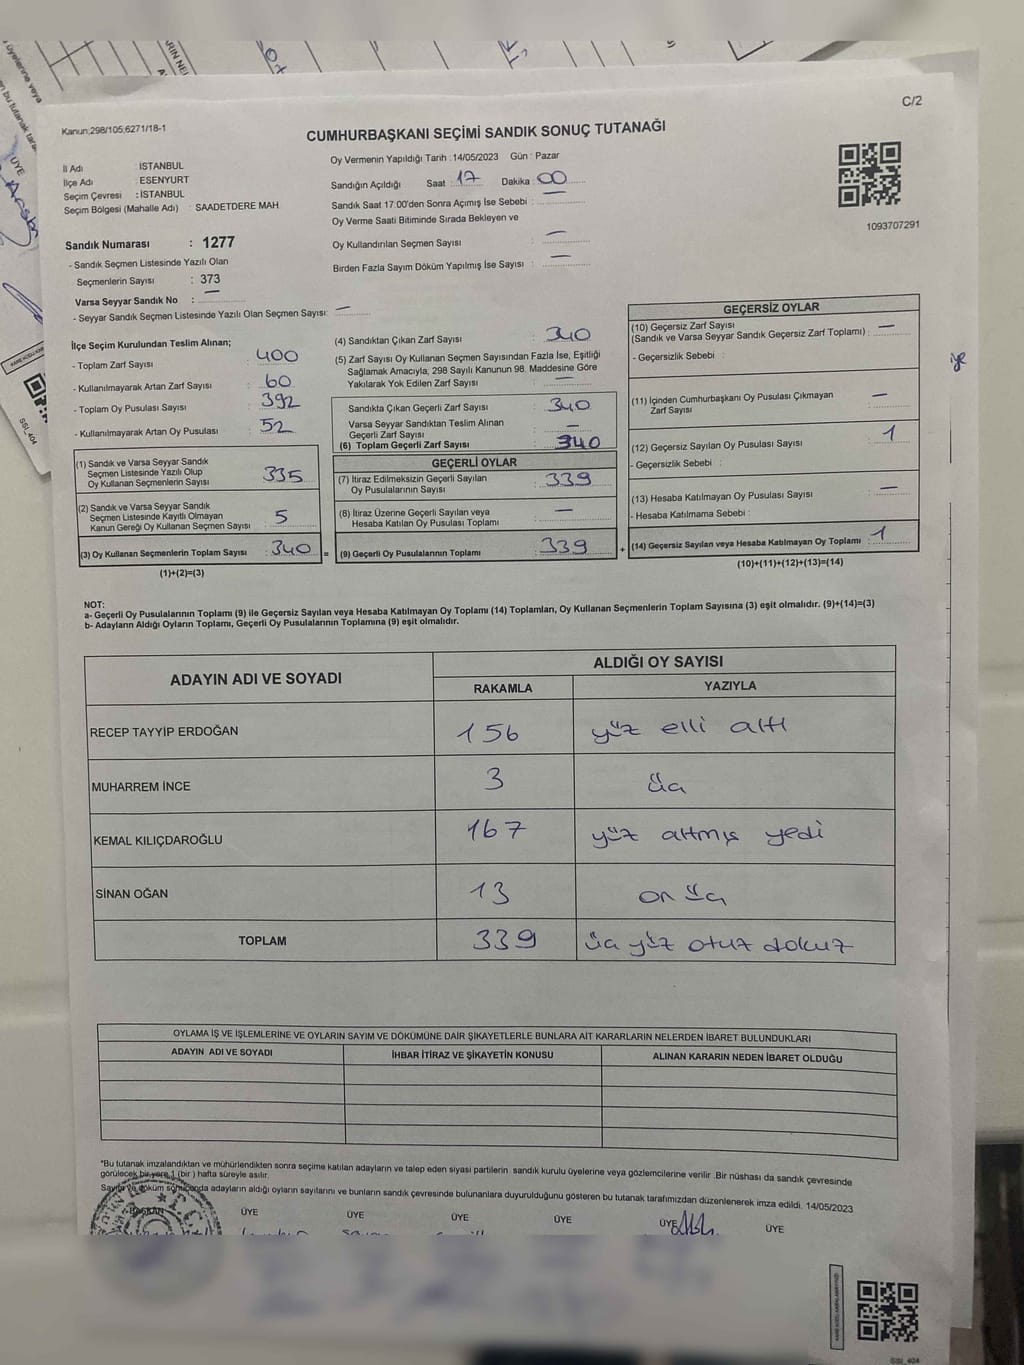 C/2
Kanun;298/105;6271/18-1
CUMHURBAŞKANI SEÇİMİ SANDIK SONUÇ TUTANAĞI
İl Adı : İSTANBUL
İlçe Adı : ESENYURT
Seçim Çevresi : İSTANBUL
Seçim Bölgesi (Mahalle Adı) : SAADETDERE MAH.
Oy Vermenin Yapıldığı Tarih : 14/05/2023 Gün : Pazar
Sandığın Açıldığı Saat : 17 Dakika : 00
Sandık Saat 17:00'den Sonra Açımış İse Sebebi : —
Oy Verme Saati Bitiminde Sırada Bekleyen ve
Oy Kullandırılan Seçmen Sayısı : —
Birden Fazla Sayım Döküm Yapılmış İse Sayısı : —
1093707291
Sandık Numarası : 1277
- Sandık Seçmen Listesinde Yazılı Olan
Seçmenlerin Sayısı : 373
Varsa Seyyar Sandık No : —
- Seyyar Sandık Seçmen Listesinde Yazılı Olan Seçmen Sayısı: —
İlçe Seçim Kurulundan Teslim Alınan;
- Toplam Zarf Sayısı : 400
- Kullanılmayarak Artan Zarf Sayısı : 60
- Toplam Oy Pusulası Sayısı : 392
- Kullanılmayarak Artan Oy Pusulası : 52
(1) Sandık ve Varsa Seyyar Sandık
Seçmen Listesinde Yazılı Olup
Oy Kullanan Seçmenlerin Sayısı : 335
(2) Sandık ve Varsa Seyyar Sandık
Seçmen Listesinde Kayıtlı Olmayan
Kanun Gereği Oy Kullanan Seçmen Sayısı : 5
(3) Oy Kullanan Seçmenlerin Toplam Sayısı : 340 =
(1)+(2)=(3)
(4) Sandıktan Çıkan Zarf Sayısı : 340
(5) Zarf Sayısı Oy Kullanan Seçmen Sayısından Fazla İse, Eşitliği
Sağlamak Amacıyla, 298 Sayılı Kanunun 98. Maddesine Göre
Yakılarak Yok Edilen Zarf Sayısı : —
Sandıkta Çıkan Geçerli Zarf Sayısı : 340
Varsa Seyyar Sandıktan Teslim Alınan
Geçerli Zarf Sayısı : —
(6) Toplam Geçerli Zarf Sayısı : 340
GEÇERLİ OYLAR
(7) İtiraz Edilmeksizin Geçerli Sayılan
Oy Pusulalarının Sayısı : 339
(8) İtiraz Üzerine Geçerli Sayılan veya
Hesaba Katılan Oy Pusulası Toplamı : —
(9) Geçerli Oy Pusulalarının Toplamı : 339 +
GEÇERSİZ OYLAR
(10) Geçersiz Zarf Sayısı
(Sandık ve Varsa Seyyar Sandık Geçersiz Zarf Toplamı) : —
- Geçersizlik Sebebi :
(11) İçinden Cumhurbaşkanı Oy Pusulası Çıkmayan
Zarf Sayısı : —
(12) Geçersiz Sayılan Oy Pusulası Sayısı : 1
- Geçersizlik Sebebi :
(13) Hesaba Katılmayan Oy Pusulası Sayısı : —
- Hesaba Katılmama Sebebi :
(14) Geçersiz Sayılan veya Hesaba Katılmayan Oy Toplamı : 1
(10)+(11)+(12)+(13)=(14)
NOT:
a- Geçerli Oy Pusulalarının Toplamı (9) ile Geçersiz Sayılan veya Hesaba Katılmayan Oy Toplamı (14) Toplamları, Oy Kullanan Seçmenlerin Toplam Sayısına (3) eşit olmalıdır. (9)+(14)=(3)
b- Adayların Aldığı Oyların Toplamı, Geçerli Oy Pusulalarının Toplamına (9) eşit olmalıdır.
ADAYIN ADI VE SOYADI ALDIĞI OY SAYISI
RAKAMLA YAZIYLA
RECEP TAYYİP ERDOĞAN 156 yüz elli altı
MUHARREM İNCE 3 üç
KEMAL KILIÇDAROĞLU 167 yüz altmış yedi
SİNAN OĞAN 13 on üç
TOPLAM 339 üç yüz otuz dokuz
OYLAMA İŞ VE İŞLEMLERİNE VE OYLARIN SAYIM VE DÖKÜMÜNE DAİR ŞİKAYETLERLE BUNLARA AİT KARARLARIN NELERDEN İBARET BULUNDUKLARI
ADAYIN ADI VE SOYADI İHBAR İTİRAZ VE ŞİKAYETİN KONUSU ALINAN KARARIN NEDEN İBARET OLDUĞU
*Bu tutanak imzalandıktan ve mühürlendikten sonra seçime katılan adayların ve talep eden siyasi partilerin sandık kurulu üyelerine veya gözlemcilerine verilir. Bir nüshası da sandık çevresinde
görülecek bir yere 1 (bir) hafta süreyle asılır.
Sayım ve döküm sonucunda adayların aldığı oyların sayılarını ve bunların sandık çevresinde bulunanlara duyurulduğunu gösteren bu tutanak tarafımızdan düzenlenerek imza edildi. 14/05/2023
BAŞKAN ÜYE ÜYE ÜYE ÜYE ÜYE ÜYE
SSI_404